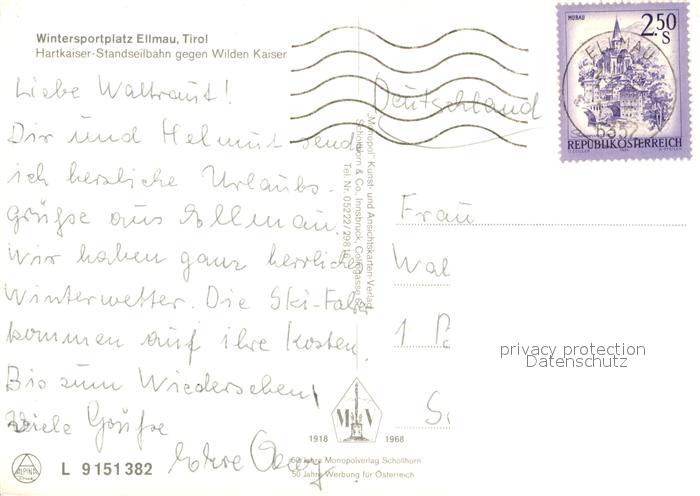 Wintersportplatz Ellmau, Tirol
Hartkaiser-Standseilbahn gegen Wilden Kaiser
Liebe Waltraut!
Dir und Helmut send
ich herzliche Urlaubs-
grüße aus Ellmau.
Wir haben ganz herrliches
Winterwetter. Die Ski-Fahrer
kommen auf ihre Kosten.
Bis zum Wiedersehen!
Viele Grüße
Eure
L 9151382
ALPINA
Druck
„Monopol" Kunst- und Ansichtskarten-Verlag
Schöllhorn & Co, Innsbruck,
Tel. Nr. 05222/29816
M V
1918 1968
50 Jahre Monopolverlag Schöllhorn
50 Jahre Werbung für Österreich
MURAU
2.50
S
REPUBLIK ÖSTERREICH
ELLMAU
6352
Deutschland
Frau
Wal
1
privacy protection
Datenschutz